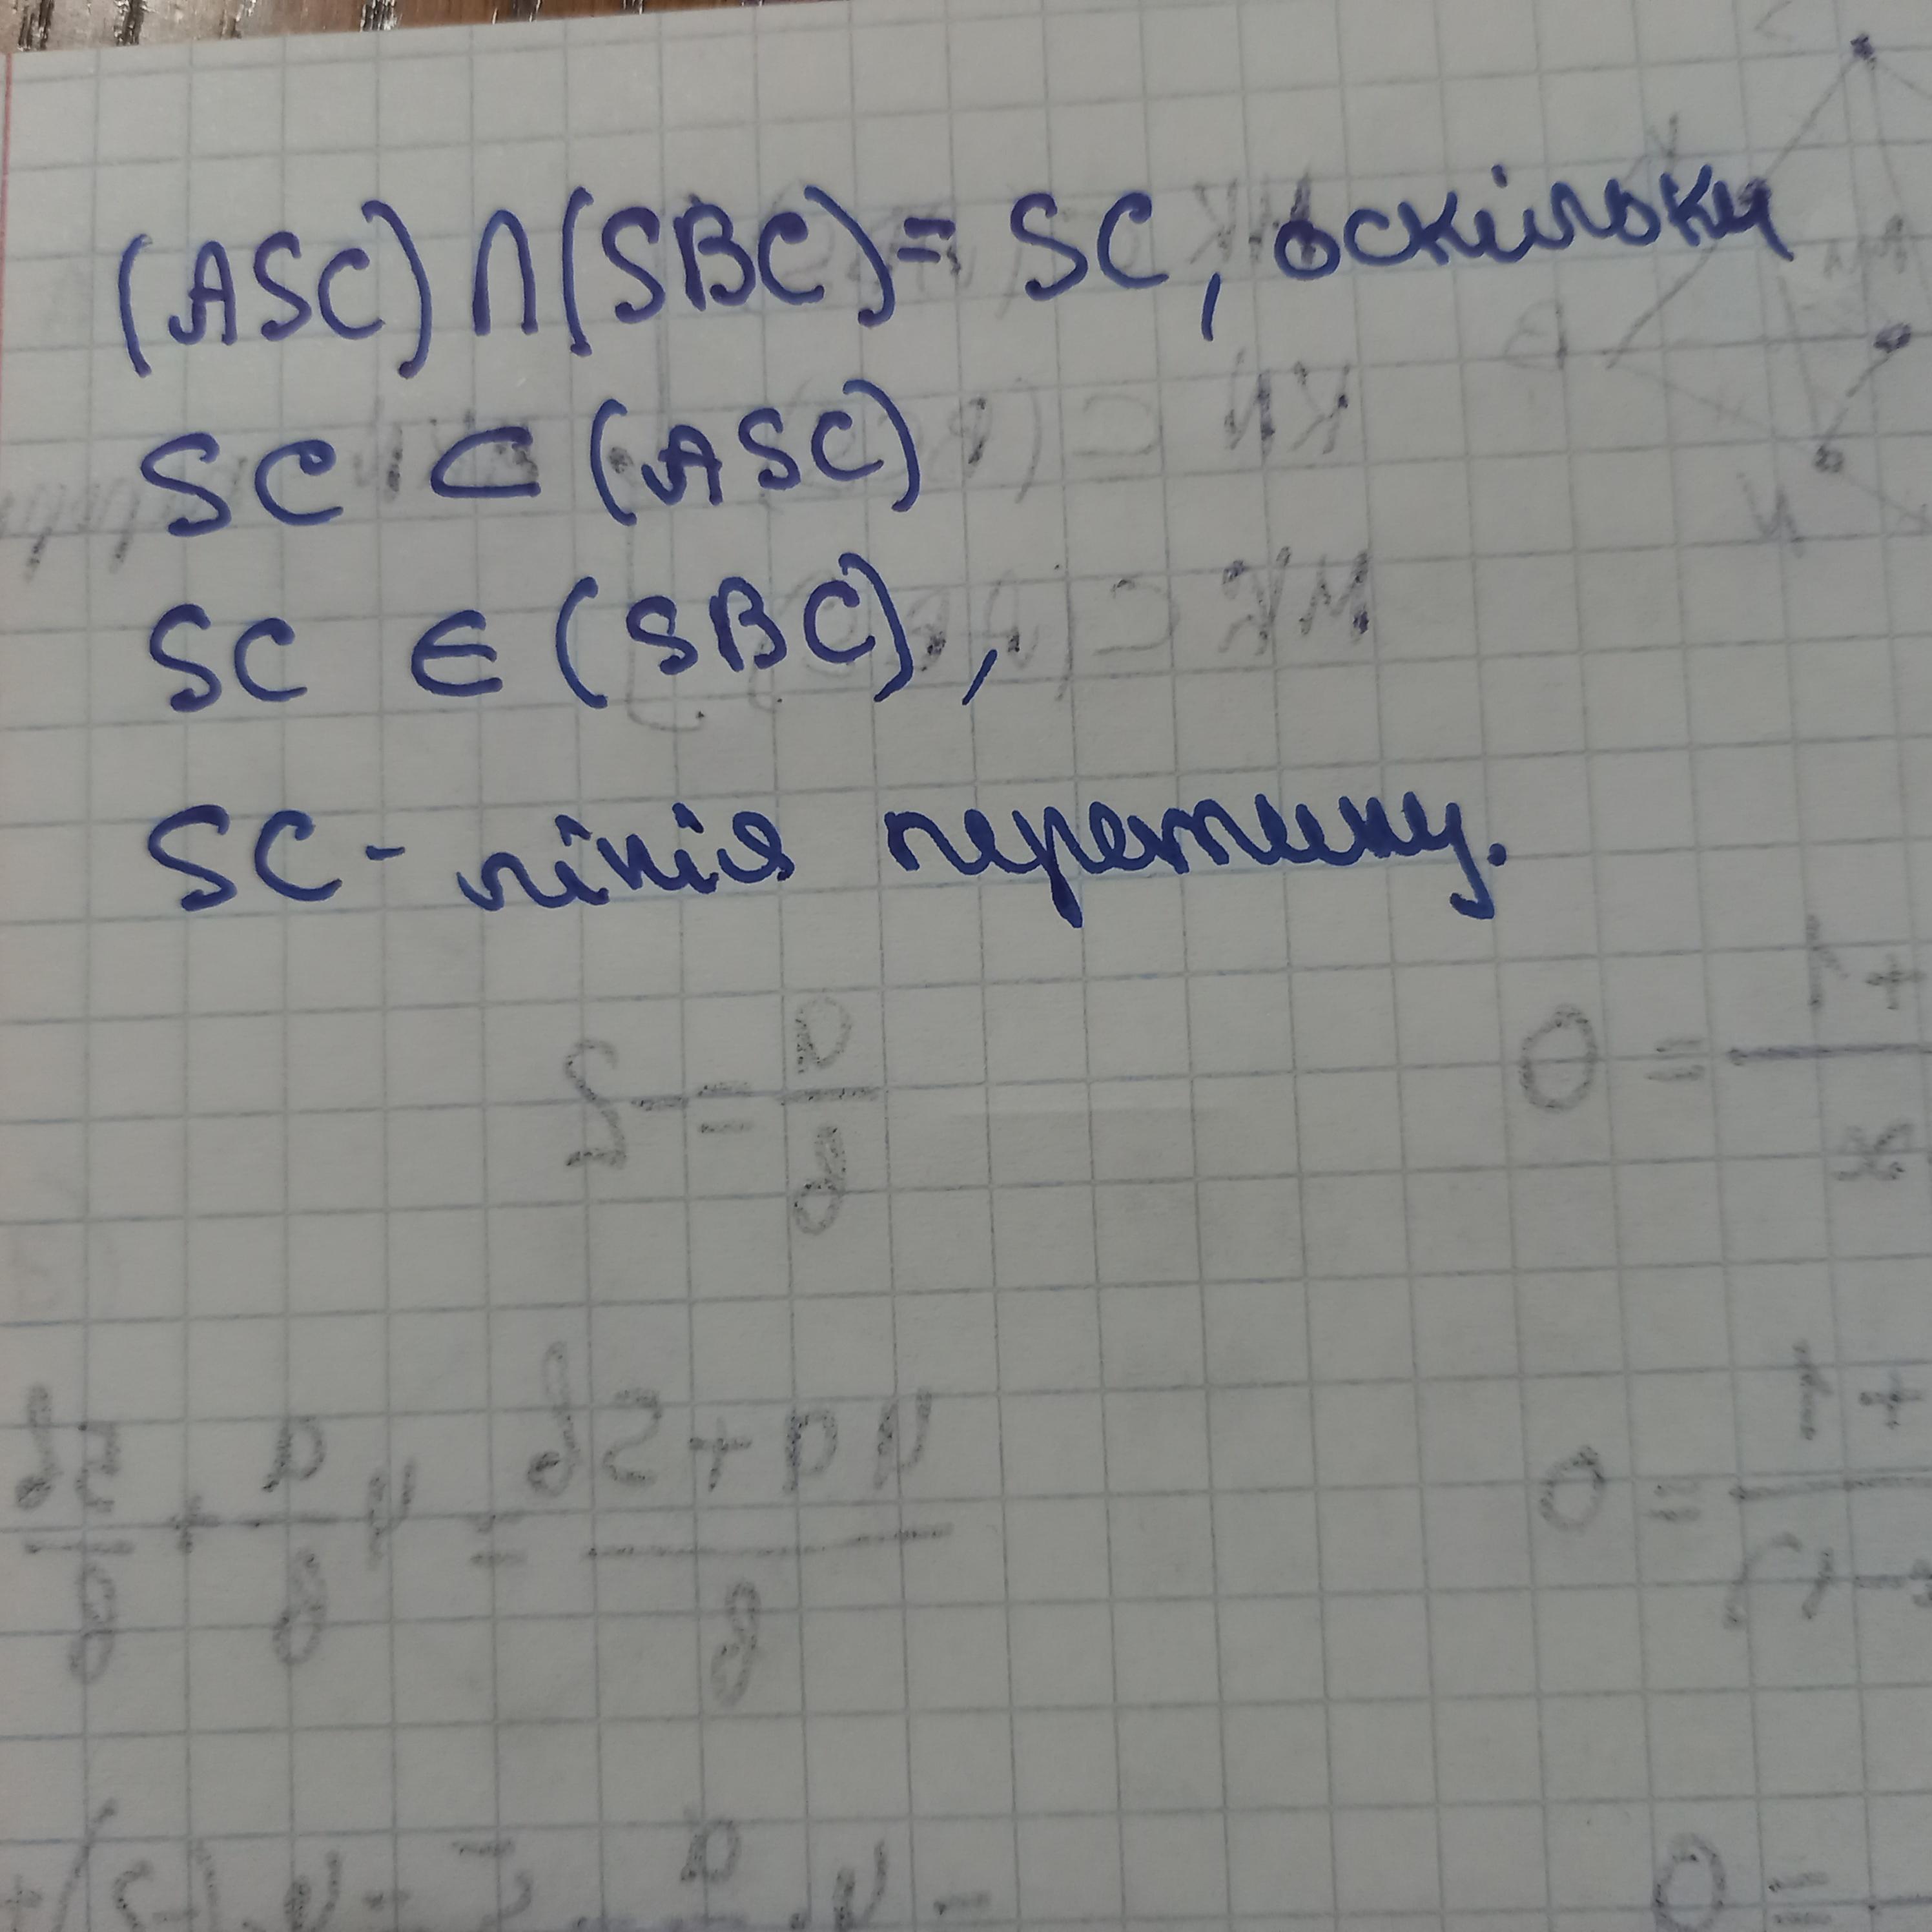 (ASC) ∩ (SBC) = SC, оскільки
SC ⊂ (ASC)
SC ∈ (SBC),
SC - лінія перетину.